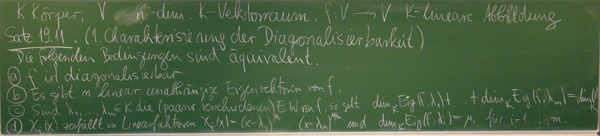 K Körper, V n-dim. K-Vektorraum, f: V → V K-lineare Abbildung
Satz 19.11. (1. Charakterisierung der Diagonalisierbarkeit)
Die folgenden Bedingungen sind äquivalent:
(a) f ist diagonalisierbar
(b) Es gibt n linear unabhängige Eigenvektoren von f.
(c) Sind λ₁, ..., λₘ ∈ K die (paarw. verschiedenen) EW von f, so gilt dim_K Eig(f, λ₁) + ... + dim_K Eig(f, λₘ) = dim
(d) X_f(x) zerfällt in Linearfaktoren X_f(x) = (x-λ₁)^μ₁ ... (x-λₘ)^μₘ und dim_K Eig(f, λᵢ) = μᵢ für i = 1 ... m.